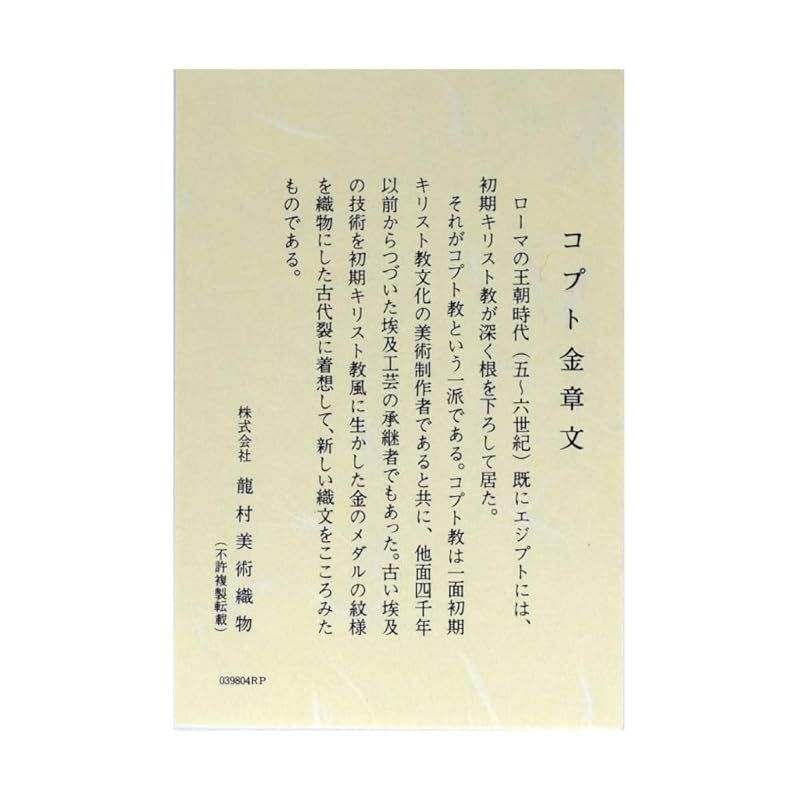 コプト金章文
ローマの王朝時代（五〜六世紀）既にエジプトには、
初期キリスト教が深く根を下ろして居た。
それがコプト教という一派である。コプト教は一面初期
キリスト教文化の美術制作者であると共に、他面四千年
以前からつづいた埃及工芸の承継者でもあった。古い埃及
の技術を初期キリスト教風に生かした金のメダルの紋様
を織物にした古代裂に着想して、新しい織文をこころみた
ものである。
株式会社 龍村美術織物
（不許複製転載）
039804RP